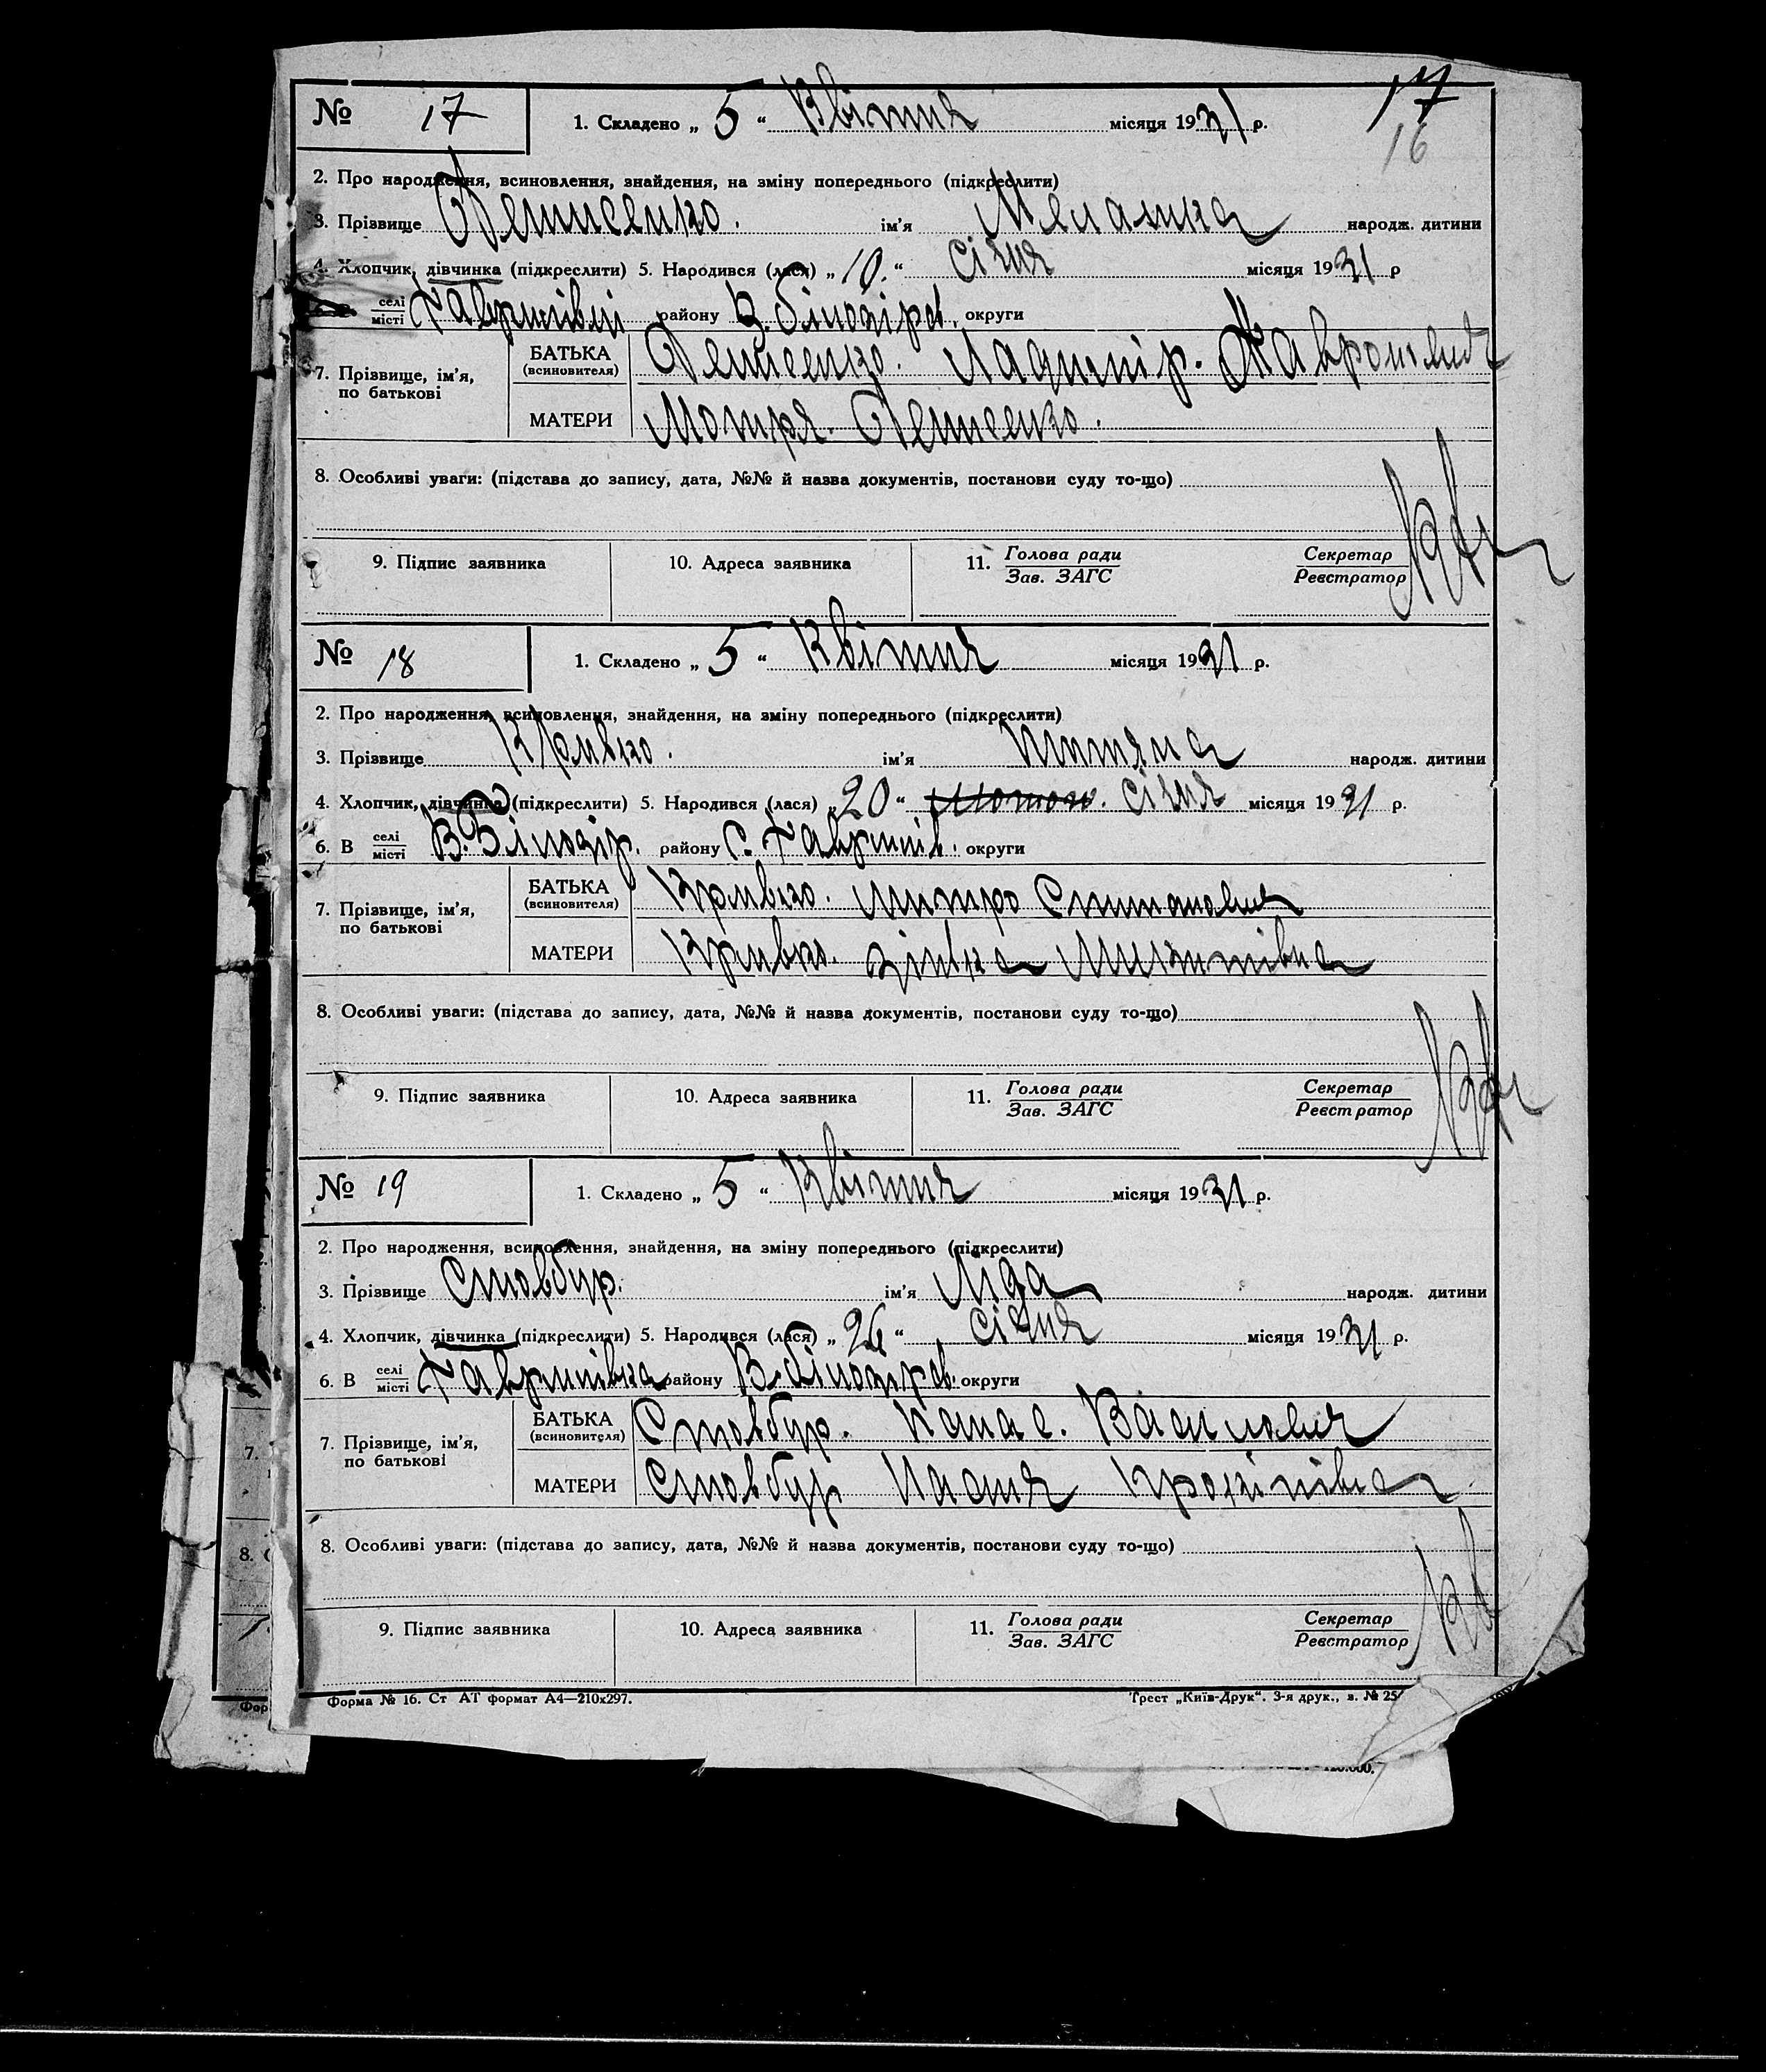 № 17 1. Складено „ 5 “ Квітня місяця 1931 р. 17
16
2. Про народження, всиновлення, знайдення, на зміну попереднього (підкреслити)
3. Прізвище Денисенко. ім'я Меланка народж. дитини
4. Хлопчик, дівчинка (підкреслити) 5. Народився (лася) „ 10. “ Січня місяця 1931 р
селі
місті Гаврилівці району В. Білозірс. округи
7. Прізвище, ім'я, по батькові БАТЬКА (всиновителя) Денисенко.
МАТЕРИ Мотря. Денисенко.
8. Особливі уваги: (підстава до запису, дата, №№ й назва документів, постанови суду то-що)
9. Підпис заявника 10. Адреса заявника 11. Голова ради Секретар
Зав. ЗАГС Реєстратор
№ 18 1. Складено „ 5 “ Квітня місяця 1931 р.
2. Про народження, всиновлення, знайдення, на зміну попереднього (підкреслити)
3. Прізвище Кривко. ім'я народж. дитини
4. Хлопчик, дівчинка (підкреслити) 5. Народився (лася) „ 20 “ Січня місяця 1931 р.
6. В селі
місті В. Білозір. району С. округи
7. Прізвище, ім'я, по батькові БАТЬКА (всиновителя) Кривко. Митро Степанович
МАТЕРИ Кривко. Зінька Микитівна
8. Особливі уваги: (підстава до запису, дата, №№ й назва документів, постанови суду то-що)
9. Підпис заявника 10. Адреса заявника 11. Голова ради Секретар
Зав. ЗАГС Реєстратор
№ 19 1. Складено „ 5 “ Квітня місяця 1931 р.
2. Про народження, всиновлення, знайдення, на зміну попереднього (підкреслити)
3. Прізвище Стовбур. ім'я Ліда народж. дитини
4. Хлопчик, дівчинка (підкреслити) 5. Народився (лася) „ 26 “ Січня місяця 1931 р.
6. В селі
місті Гаврилівка району В. Білозірс. округи
7. Прізвище, ім'я, по батькові БАТЬКА (всиновителя) Стовбур. Панас. Василович
МАТЕРИ Стовбур
8. Особливі уваги: (підстава до запису, дата, №№ й назва документів, постанови суду то-що)
9. Підпис заявника 10. Адреса заявника 11. Голова ради Секретар
Зав. ЗАГС Реєстратор
Форма № 16. Ст АТ формат А4—210х297. Трест „Київ-Друк“. 3-я друк., з. № 25